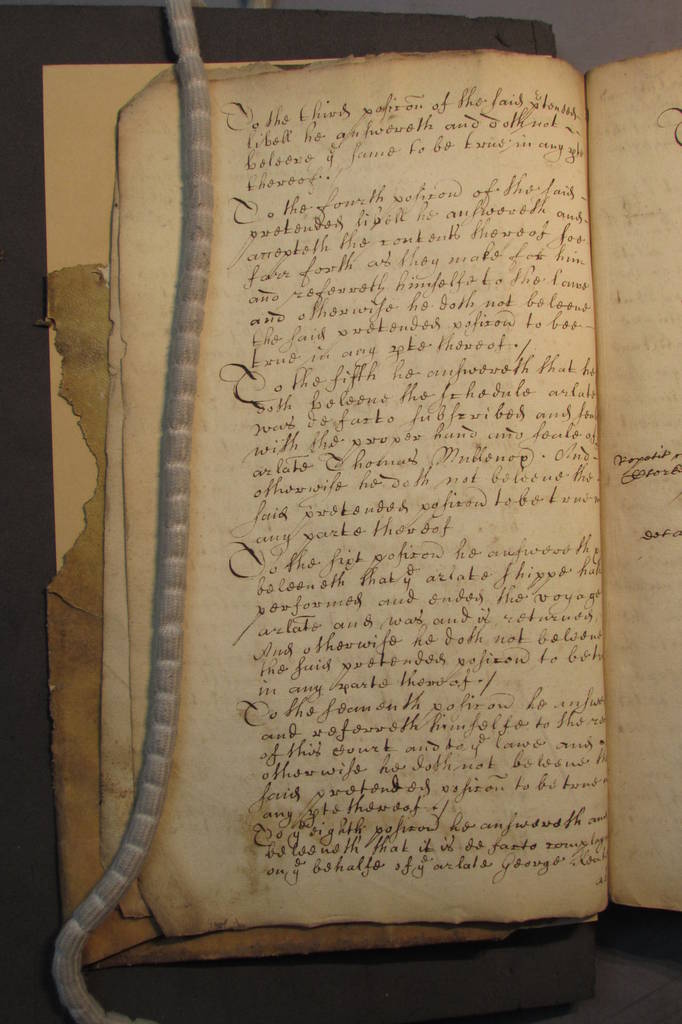 To the third position of the said ptended
libell he answereth and doth not
beleeve yͤ same to be true in any pte
thereof ./
To the fourth position of the said
pretended libell he answereth and
accepteth the contents thereof soe
farr forth as they make for him
and referreth himselfe to the lawe
and otherwise he doth not beleeve
the said pretended position to bee
true in any pte thereof ./
To the fifth he answereth that he
doth beleeve the schedule arlate
was de facto subscribed and
with the proper hand and seale of
arlate Thomas And
otherwise he doth not beleeve the
said pretended position to be true
any parte thereof
To the sixt position he answereth
beleeveth that yͤ arlate shippe
performed and ended the voyage
arlate and was and is returned
And otherwise he doth not beleeve
the said pretended position to be
in any parte thereof ./
To the seaventh position he
and referreth himselfe to the
of this Court and to yͤ lawe and
otherwise he doth not beleeve
said pretended position to be true
any pte thereof ./
To yͤ eighth position he answereth and
beleeveth that it is de facto
on yͤ behalfe of yͤ arlate George